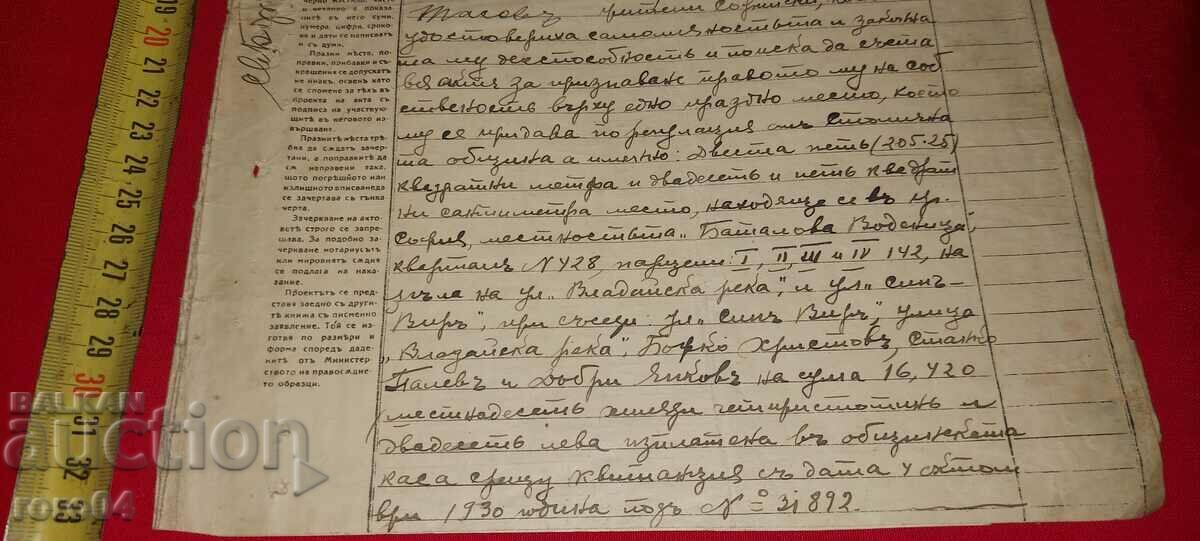 черно и ясно, както
и нечанно е показано
въ него суми,
нумера, цифри, сроко-
ве и дати се написватъ
и съ думи.
Празни мѣста, по-
правки, прибавки и съ-
кращения се допускатъ
не инакъ, освенъ като
се спомене за тѣхъ въ
проекта на акта съ
подписа на участвую-
щитѣ въ неговото из-
вършване.
Празнитѣ мѣста трѣб-
ва да сѫдатъ зачер-
тани, а поправкитѣ да
сѫ направени така,
щото погрѣшното или
излишното вписване да
се зачертава съ тънка
черта.
Зачеркване на акто-
ветѣ строго се запре-
щава. За подобно за-
черкване нотариусътъ
или мировиятъ сѫдия
се подлага на нака-
зание.
Проектътъ се пред-
ставя заедно съ други-
тѣ книжа съ писменно
заявление. Той се из-
готвя по размѣри и
форма споредъ даде-
нитѣ отъ Министер-
ството на правосѫдие-
то образци.
удостовериха самоличностьта и законна
та му дееспособность и поиска да съста
вя актъ за признаване правото му на соб
ственость върху едно празно место, което
му се придава по регулация отъ Столична
та община а именно: Двеста петь (205·25)
квадратни метра и двадесеть и петь квадрат
ни сантиметра место, находяще се въ гр.
София, местностьта „Баталова Воденица",
кварталъ N 428, парцели: I, II, III и IV 142, на
ъгъла на ул. „Владайска река", и ул. „Синъ-
Виръ", при съседи: ул. „Синъ Виръ", улица
„Владайска река", Борко Христовъ, Станко
Палевъ и Добри Янковъ на сума 16,420
шестнадесеть хиляди четиристотинъ и
двадесеть лева изплатена въ общинската
каса срещу квитанция съ дата 4 октом
ври 1930 година подъ No 31892.
BALKAN
auction
rosi04
09
20
21
22
23
24
25
26
27
28
29
30
31
32
33